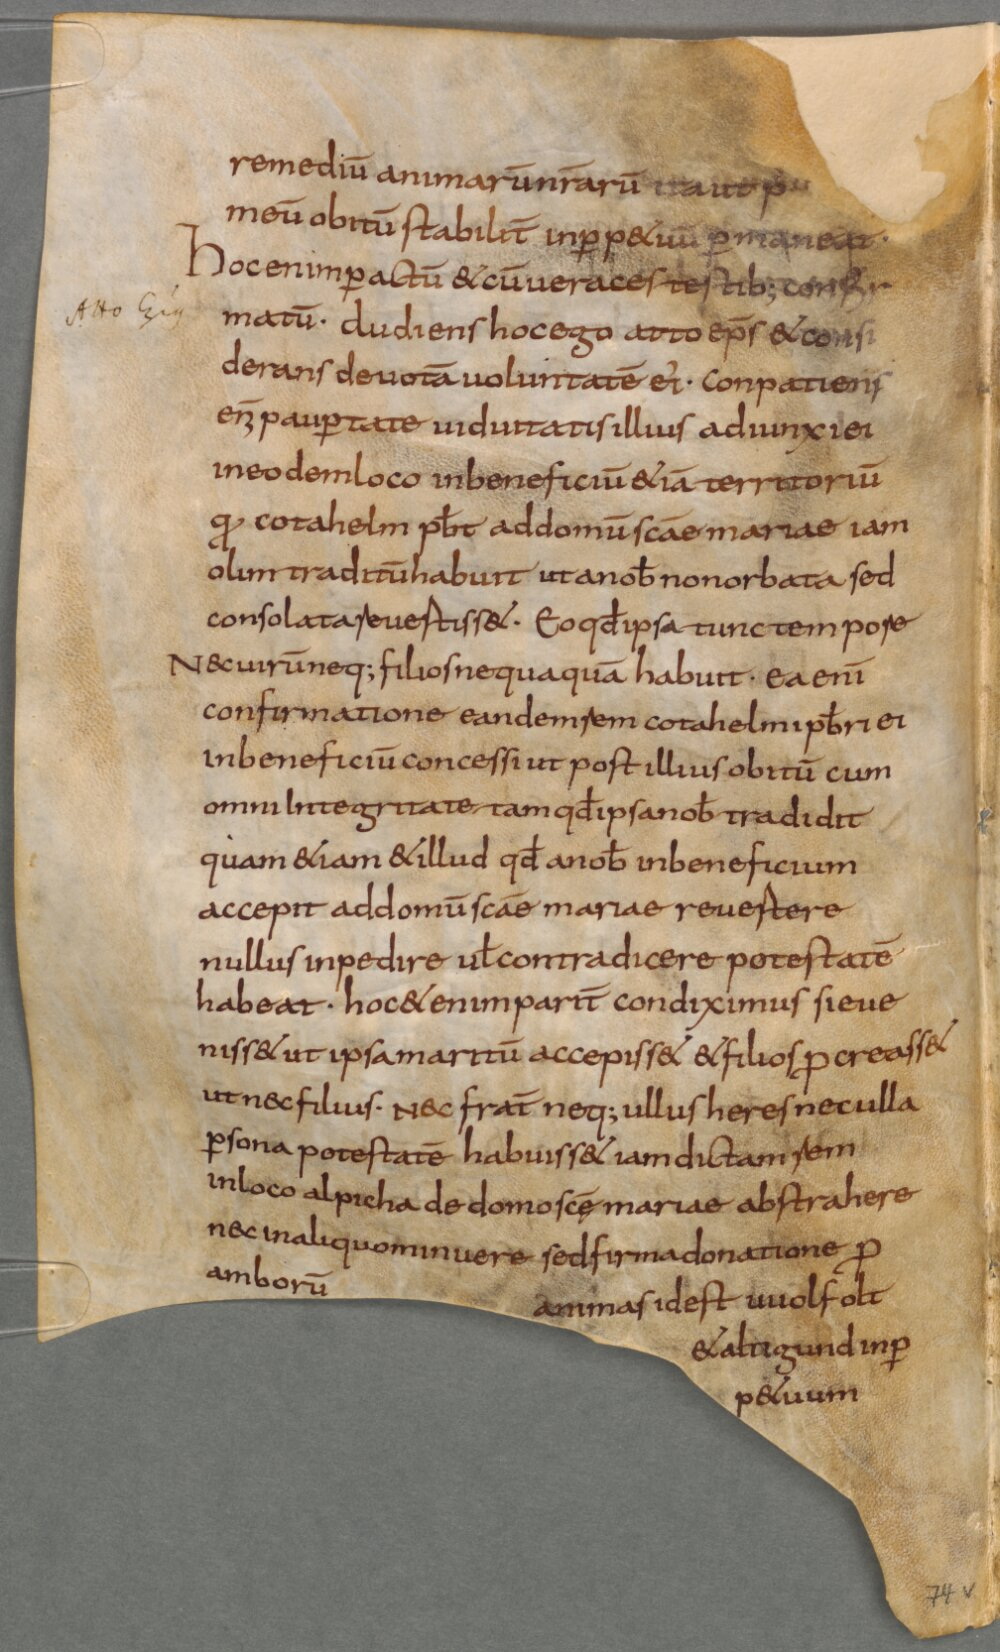 remediū animarūnr̄arū ita ut p
meū obitū stabilit̄ inp̱p&uū p̱maneat·
Hocenimp̱actū &cūueraces testib; confir
Atto Ep̄s
matū· Audiens hocego atto ep̄s & consi
derans deuotā uoluntatē ei· Conpatiens
eni paup̱tate uiduitatis illius adiunxi ei
ineodemloco inbeneficiū &iā territoriū
qđ cotahelm pb̄t addomū sc̄ae mariae iam
olim traditūhabuit ut anob̄ nonorbata sed
consolata reuestiss&. Eo qđ ipsa tunc tempore
N&uirūneq; filios nequaquā habuit· ea enī
confirmatione eandem rem cotahelmi pb̄ri ei
inbeneficiū concessi ut post illius obitū cum
omni Integritate tam qđ ipsa nob̄ tradidit
quam &iam &illud qđ anob̄ inbeneficium
accepit addomū sc̄ae mariae reuestere
nullus inpedire ul̄ contradicere potestatē
habeat· hoc&enim parit̄ condiximus si eue
niss& ut ipsa maritū accepiss& &filios p̱creass&
ut nec filius· Nec frat̄ neq; ullus heres nec ulla
p̱sona potestatē habuiss& iamdictam rem
inloco alpicha de domo sc̄ę mariae abstrahere
nec inaliquo minuere sed firma donatione p̱
amborū animas idest uuolfolt
&altigund inp̱
p&uum
74 v